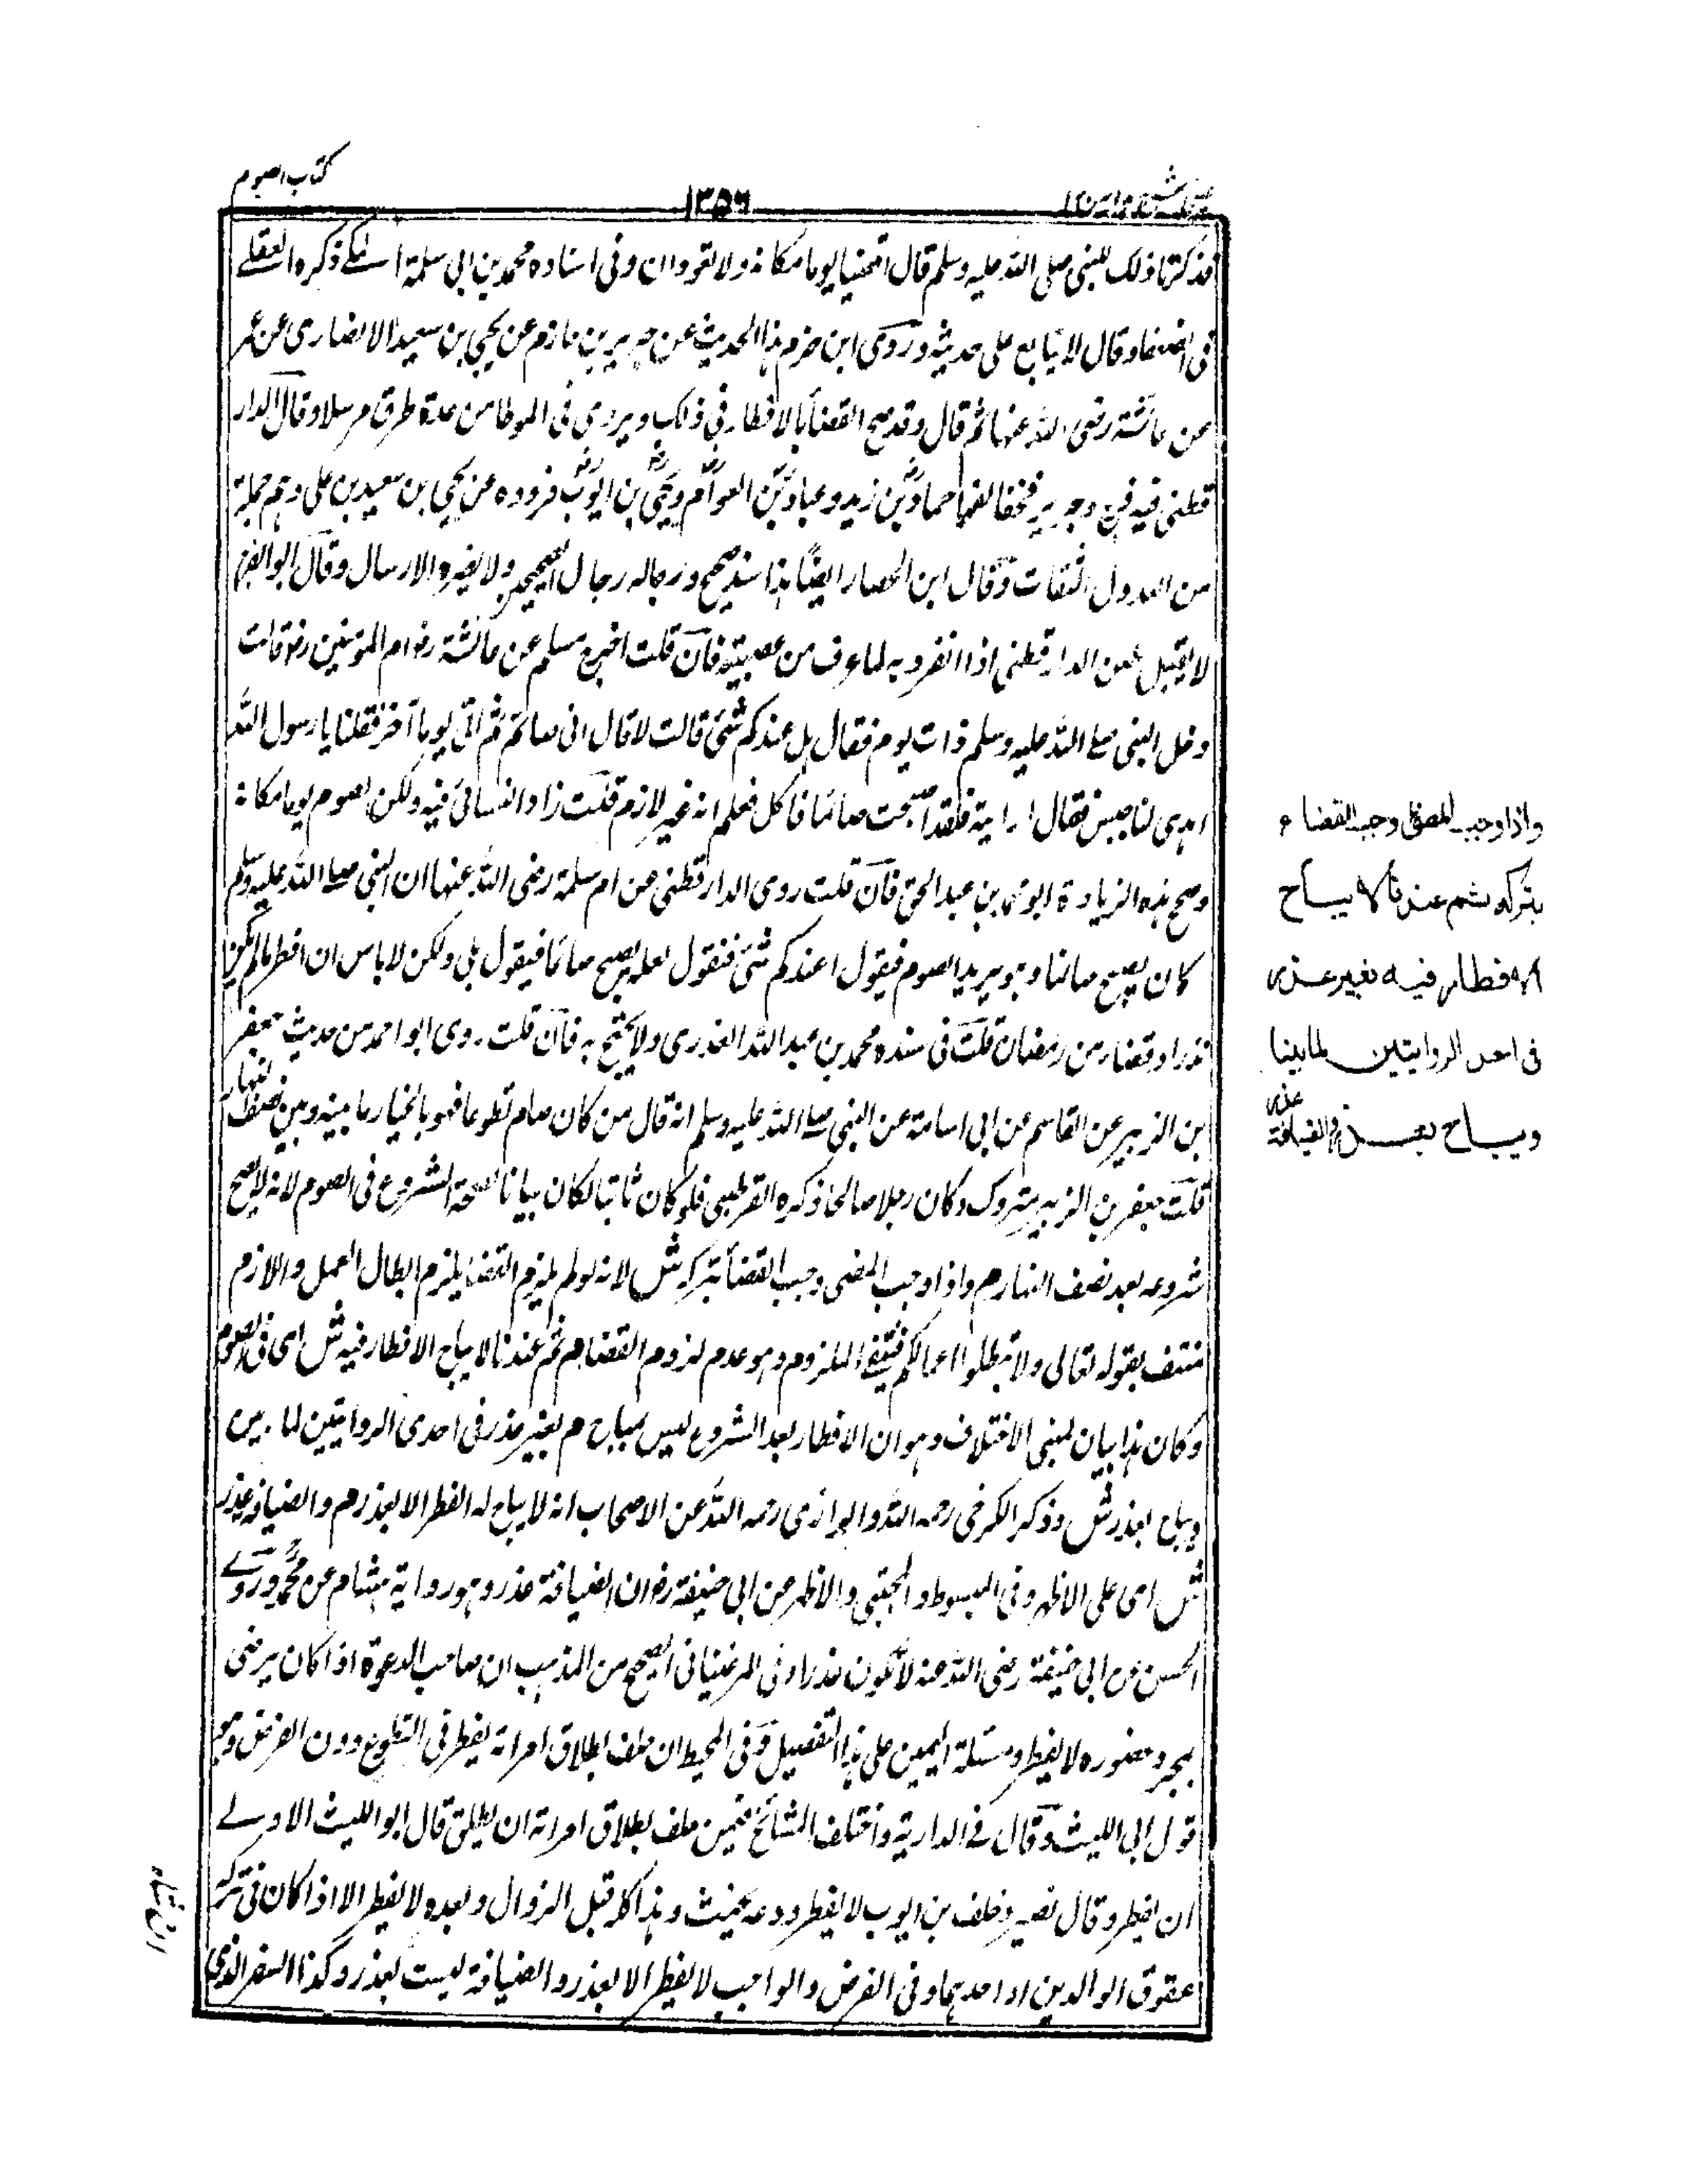 كتاب الصوم
١٣٥٦
فذكرتا ذلك للنبي صلى الله عليه وسلم قال اقضيا يوما مكانه ولا تعودان وفى اسناده محمد بن ابى سلمة المكے ذكره العقيلے
فى الضعفا وقال لا يتابع على حديثه وروى ابن حزم هذا الحديث عن جرير بن حازم عن يحيى بن سعيد الانصارى عن عمرة
عن عائشة رضى الله عنها ثم قال وقد صح القضأ بالافطار فى ذلك ويروى فى الموطا من عدة طرق مرسلا وقال الدار
قطنى فيه فرج وجرير فخفا لفهما حماد بن زيد وعباد بن العوام ويحيى بن ايوب فرووه عن يحيى بن سعيد بن على وهم جملة
من العدول الثقات وقال ابن الحصار ايضًا هذا سند صحيح ورجاله رجال الصحيحين ولا يضره الارسال وقال ابو الفرج
لا يقبل طعن الدارقطنى اذا انفرد به لما عرف من عصبيته فان قلت اخرج مسلم عن عائشة رضا ام المؤمنين رضا قالت
دخل النبى صلے الله عليه وسلم ذات يوم فقال هل عندكم شئ قالت لا قال انى صائم ثم اتى يوما آخر فقلنا يا رسول الله
اهدى لنا حيس فقال ارانيه فلقد اصبحت صائما فاكل فعلم انه غير لازم قلت زاد النسائى فيه ولكن يصوم يوما مكانه
وصحح هذه الزيادة ابو محمد بن عبد الحق فان قلت روى الدارقطنى عن ام سلمة رضى الله عنها ان النبى صلے الله عليه وسلم
كان يصبح صائما وهو يريد الصوم فيقول اعندكم شئ فنقول لعله يصبح صائما فيقول بلى ولكن لا باس ان افطر مالم يكن
نذرا وقضاء من رمضان قلت فى سنده محمد بن عبد الله الغدرى ولا يحتج به فان قلت روى ابو احمد من حديث جعفر
بن الزبير عن القاسم عن ابى اسامة عن النبى صلے الله عليه وسلم انه قال من كان صام تطوعا فهو بالخيار ما بينه وبين نصف النهار
قلت جعفر بن الزبير متروك وكان رجلا صالحا ذكره القرطبى فلو كان ثابتا لكان بيانا لصحة الشروع فى الصوم لانه لا يصح
شروعه بعد نصف النهار م واذا وجب المضى وجب القضأ بتركه ش لانه لو لم يلزم القضأ يلزم ابطال العمل واللازم
منتف بقوله تعالى ولا تبطلوا اعمالكم فينتفے الملزوم وهو عدم لزوم القضاء م ثم عندنا لا يباح الافطار فيه ش اى فى الصوم
وكان هذا بيان لمبنى الاختلاف وهو ان الافطار بعد الشروع ليس بمباح م بغير عذر فى احدى الروايتين لما بين
ويباح بعذر ش وذكر الكرخى رحمه الله والرازى رحمه الله عن الاصحاب انه لا يباح له الفطر الا بعذر م والضيافة عذر
ش اى على الاظهر وفى المبسوط والمجتبى والاظهر عن ابى حنيفة رضا ان الضيافة عذر وهو رواية هشام عن محمد وروے
الحسن عن ابى حنيفة رضى الله عنه لا تكون عذرا وفى المرغينانى الصحيح من المذهب ان صاحب الدعوة اذا كان يرضى
بمجرد حضوره لا يفطر ومسئلة اليمين على هذا التفصيل وفى المحيط ان حلف بطلاق امراته يفطر فى التطوع دون الفرض وهو
قول ابى الليث وقال فے الدارية واختلف المشائخ فيمن حلف بطلاق امراته ان يطلق قال ابو الليث الاولے
ان يفطر وقال نصير وخلف بن ايوب لا يفطر ودعه يحنث وهذا كله قبل الزوال وبعده لا يفطر الا اذا كان فى تركه
عقوق الوالدين او احدهما وفى الفرض والواجب لا يفطر الا بعذر والضيافة ليست بعذر وكذا السفر الذى
واذا وجب المضى وجب القضاء
بتركه ثم عندنا لا يباح
الافطار فيه بغير عذر
فى احدى الروايتين لما بينا
ويباح بعذر والضيافة عذر